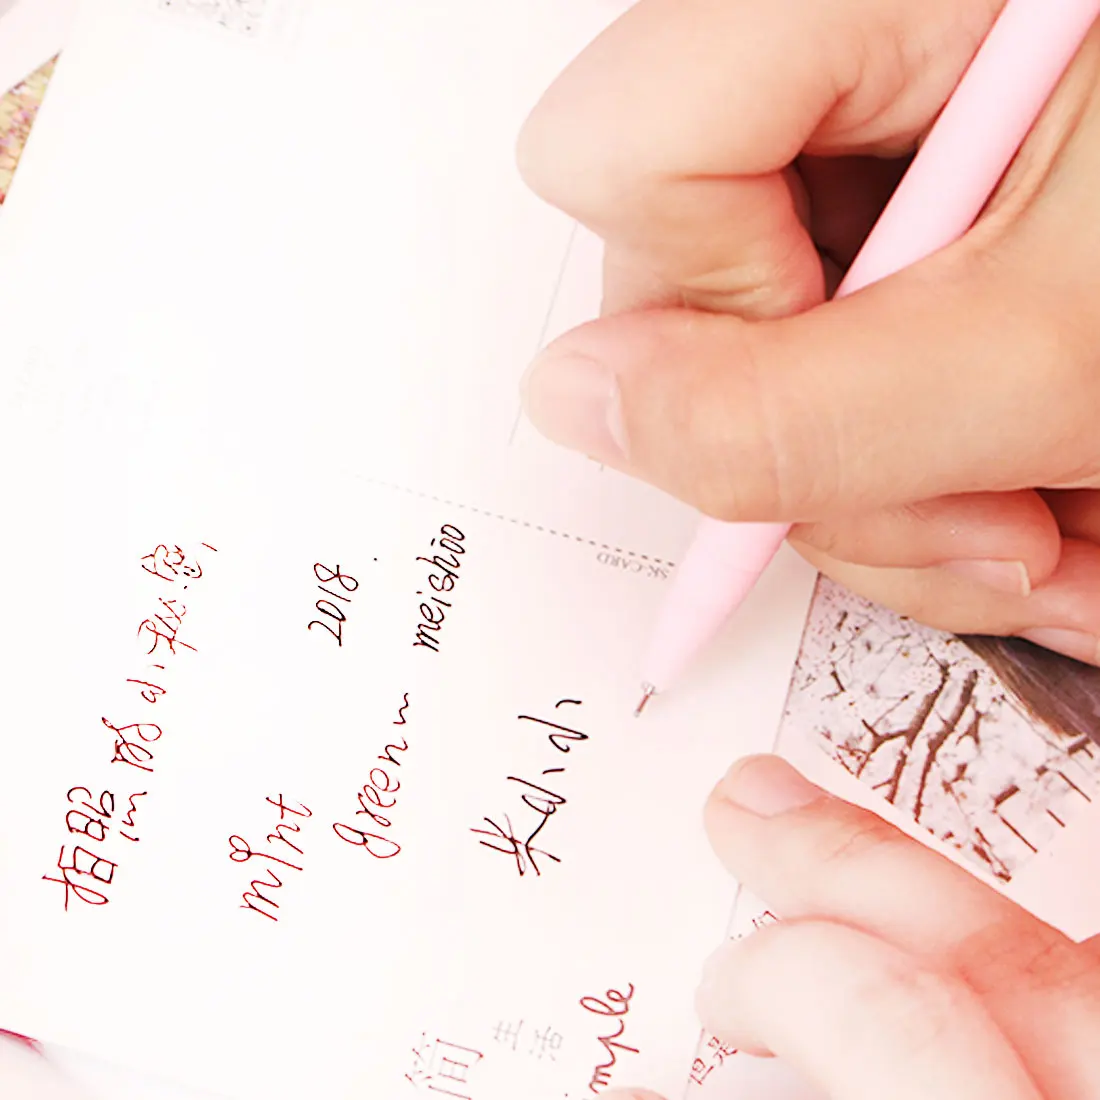 拍照的小秘密,
mint
2018.
green
meishoo
米小小
SK-CARD
简
生活
imple
但是